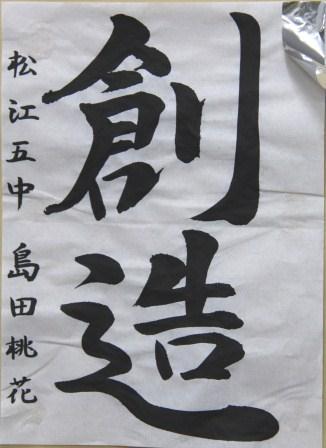 創造
松江五中 島田桃花